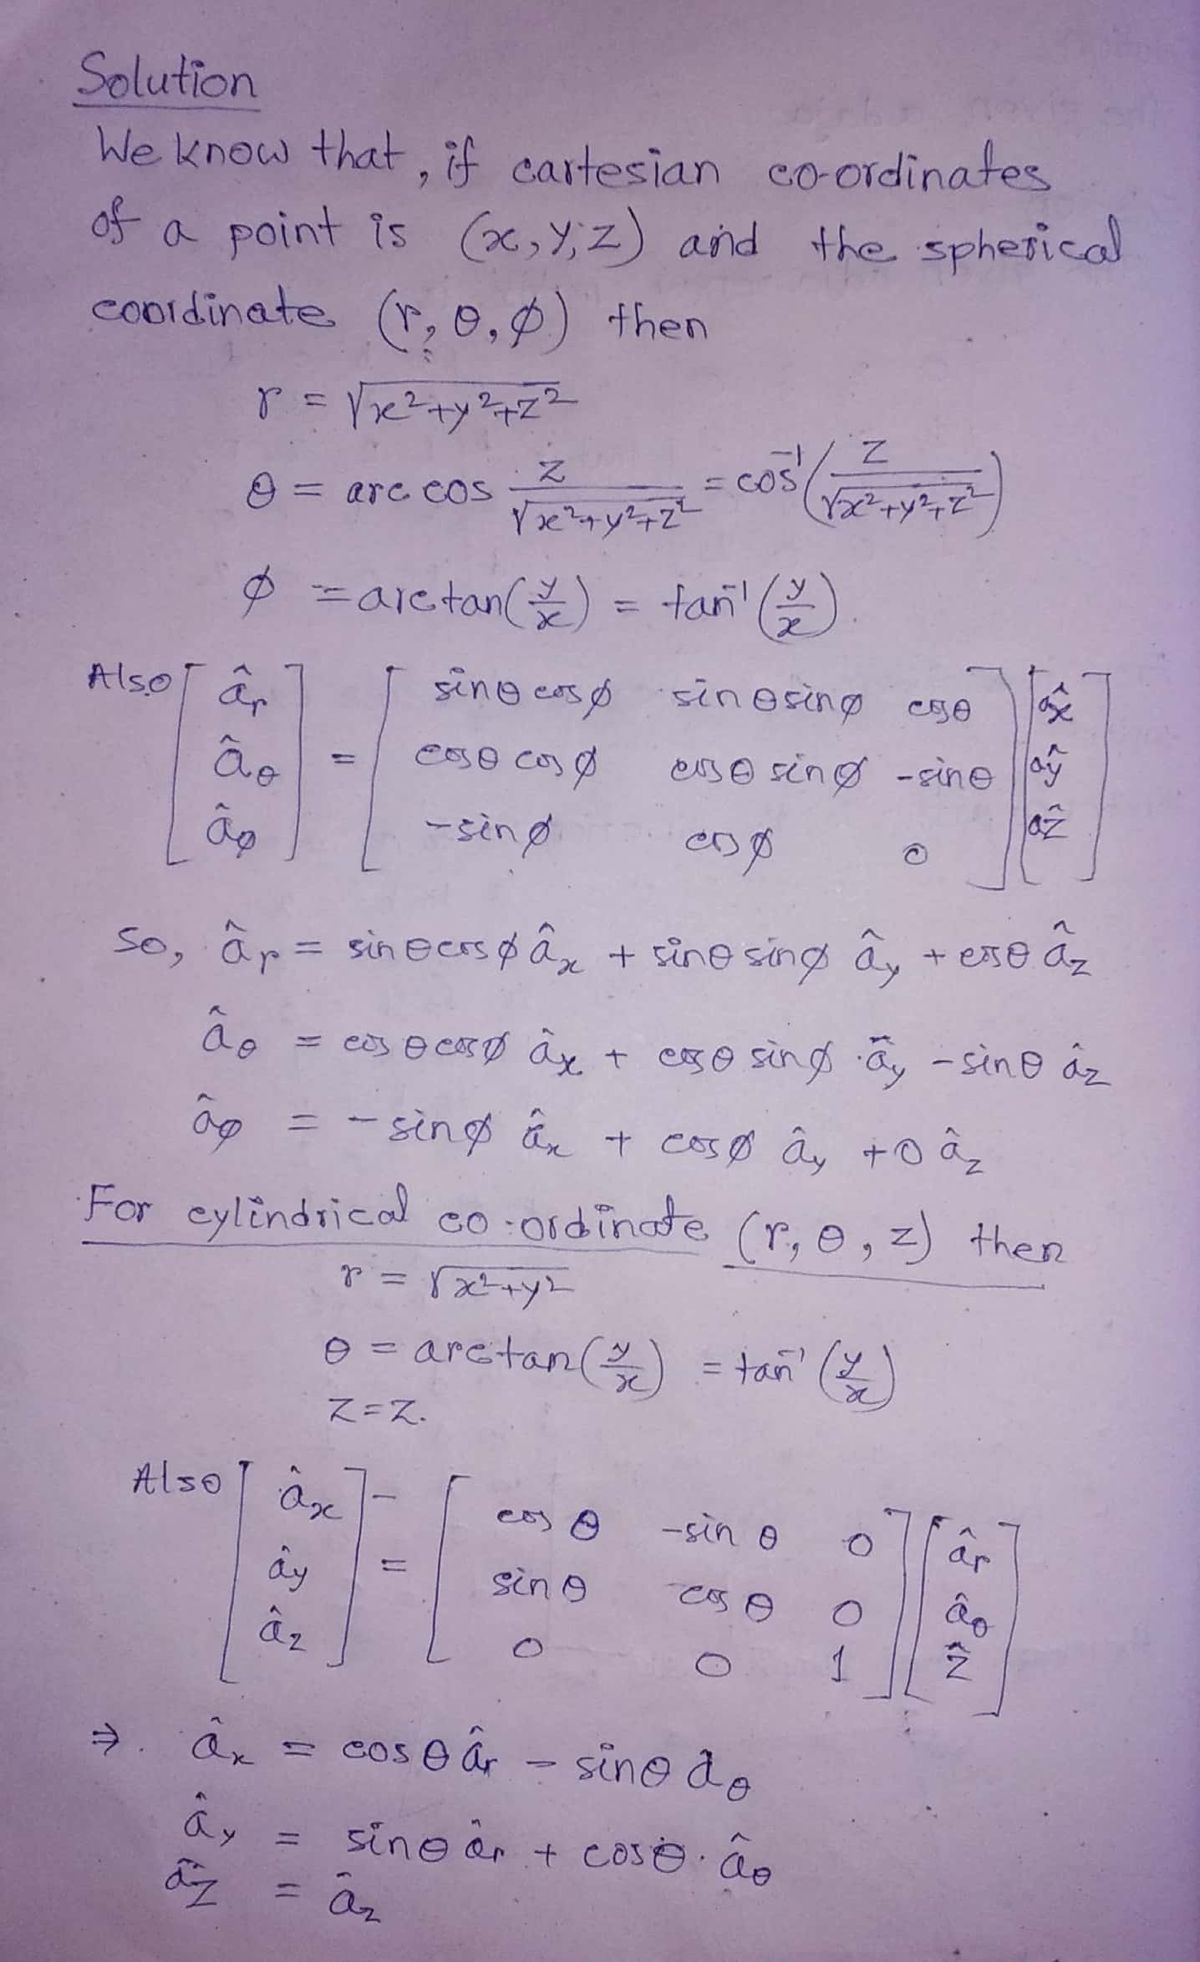 Solution
We know that, if cartesian co-ordinates
of a point is (x, y, z) and the spherical
coordinate (r, θ, ϕ) then
r = √x²+y²+z²
θ = arc cos z/√x²+y²+z² = cos⁻¹(z/√x²+y²+z²)
ϕ = arctan(y/x) = tan⁻¹(y/x).
Also [âr âθ âϕ] = [sinθ cosϕ sinθ sinϕ cosθ; cosθ cosϕ cosθ sinϕ -sinθ; -sinϕ cosϕ 0] [âx ây âz]
So, âr = sinθ cosϕ âx + sinθ sinϕ ây + cosθ âz
âθ = cosθ cosϕ âx + cosθ sinϕ · ây - sinθ âz
âϕ = -sinϕ âx + cosϕ ây + 0 âz
For cylindrical co-ordinate (r, θ, z) then
r = √x²+y²
θ = arctan(y/x) = tan⁻¹(y/x)
z = z.
Also [âx ây âz] = [cosθ -sinθ 0; sinθ cosθ 0; 0 0 1] [âr âθ ẑ]
⇒. âx = cosθ âr - sinθ âθ
ây = sinθ âr + cosθ · âθ
âz = âz